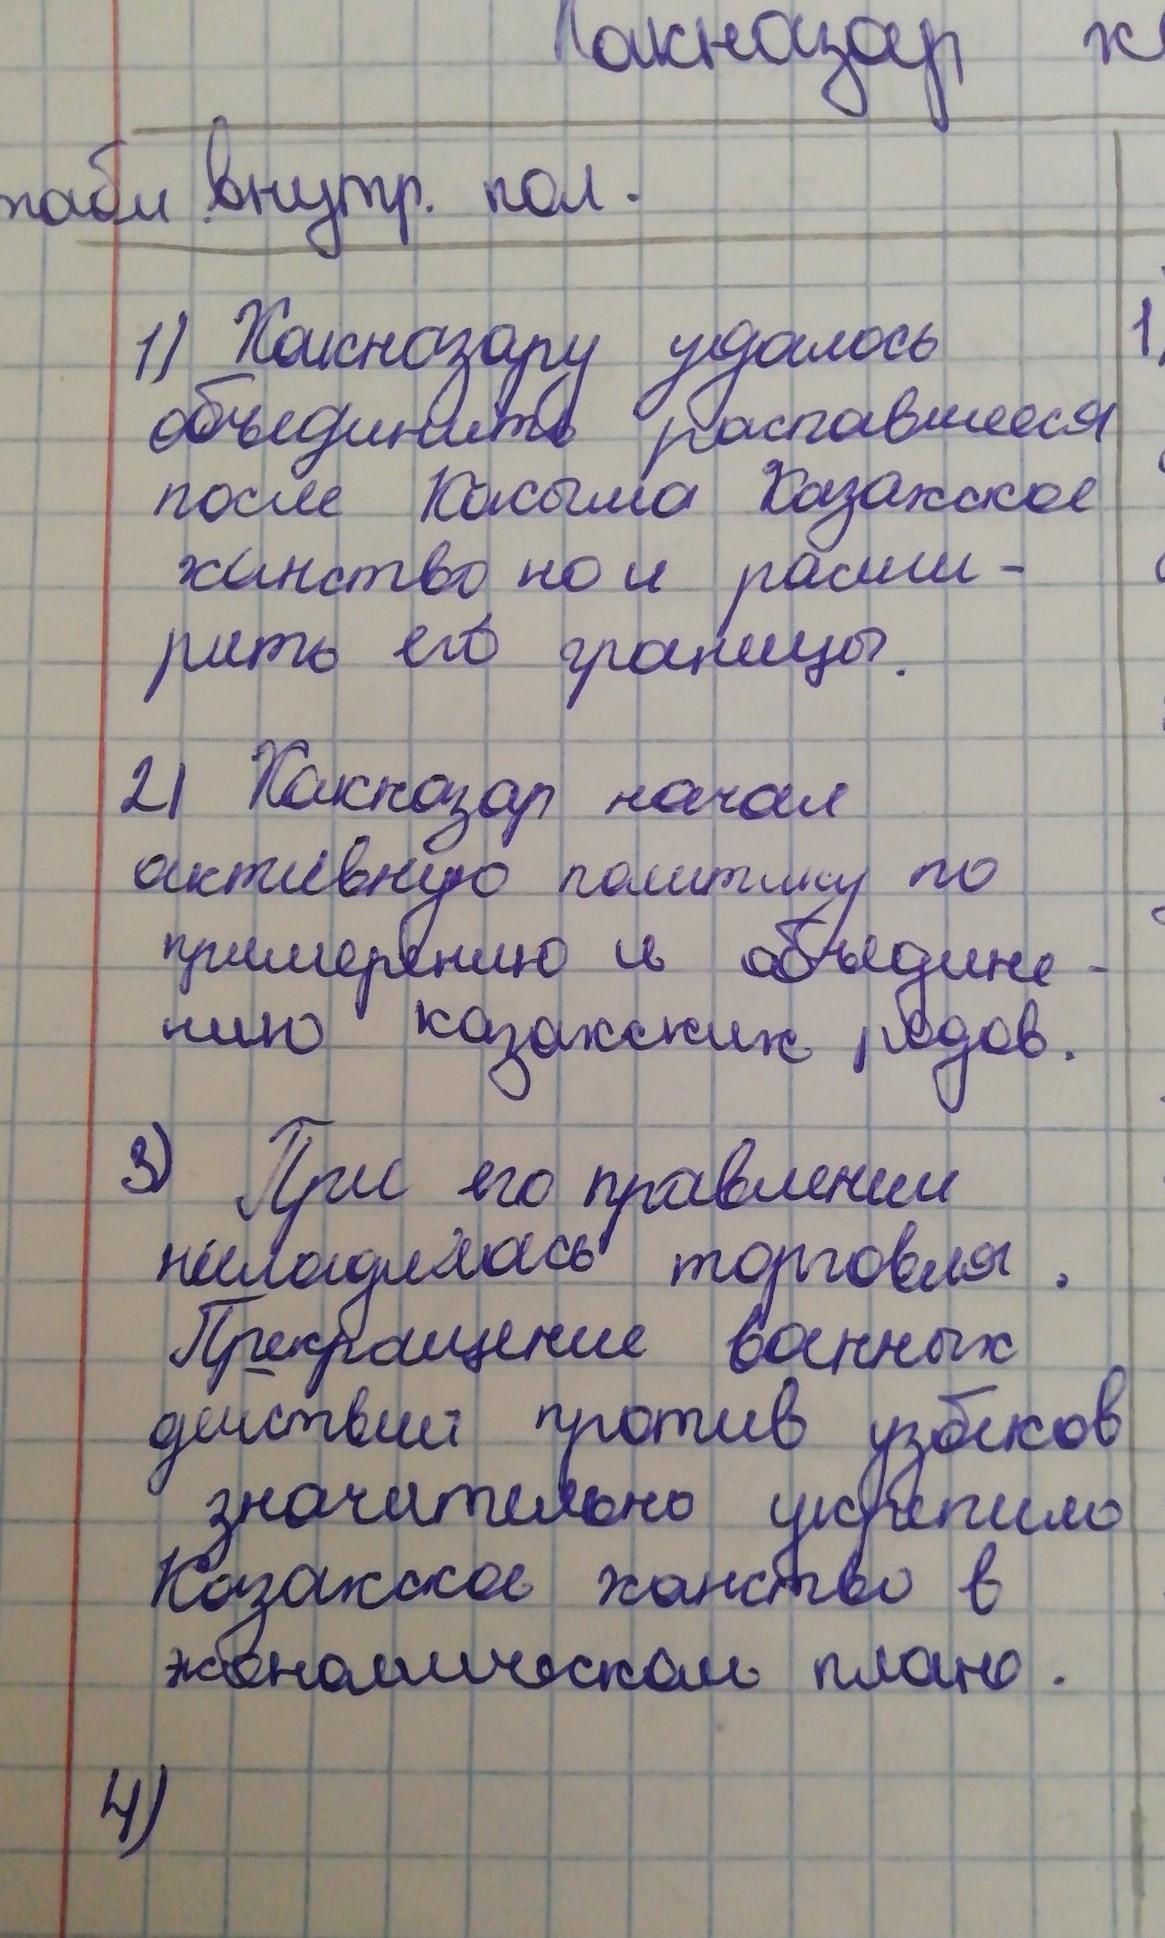 Хакназар х
стаби внутр. пол.
1) Хакназару удалось
объединить распавшееся
после Касыма Казахское
ханство но и расши-
рить его границы.
2) Хакназар начал
активную политику по
примерению и объедине-
нию казахских родов.
3) При его правлении
наладилась торговля.
Прекращение военных
действий против узбеков
значительно укрепило
Казахское ханство в
экономическом плане.
4)
1)